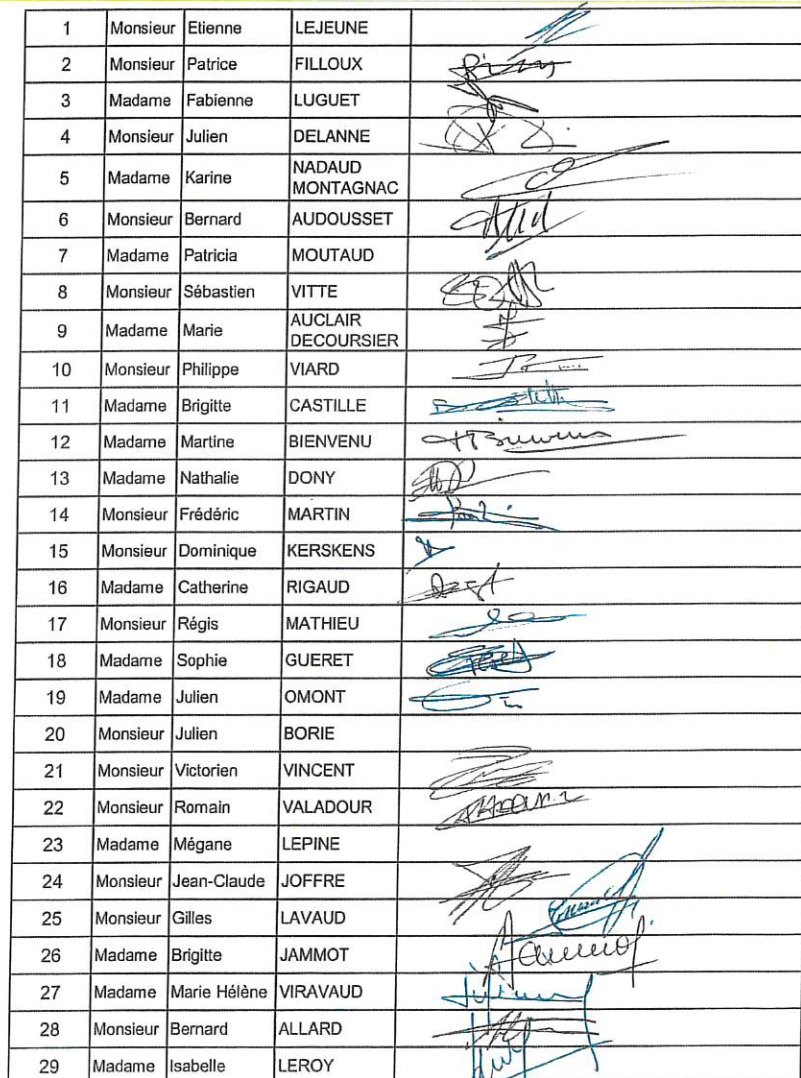 1 Monsieur Etienne LEJEUNE
2 Monsieur Patrice FILLOUX
3 Madame Fabienne LUGUET
4 Monsieur Julien DELANNE
5 Madame Karine NADAUD
MONTAGNAC
6 Monsieur Bernard AUDOUSSET
7 Madame Patricia MOUTAUD
8 Monsieur Sébastien VITTE
9 Madame Marie AUCLAIR
DECOURSIER
10 Monsieur Philippe VIARD
11 Madame Brigitte CASTILLE
12 Madame Martine BIENVENU
13 Madame Nathalie DONY
14 Monsieur Frédéric MARTIN
15 Monsieur Dominique KERSKENS
16 Madame Catherine RIGAUD
17 Monsieur Régis MATHIEU
18 Madame Sophie GUERET
19 Madame Julien OMONT
20 Monsieur Julien BORIE
21 Monsieur Victorien VINCENT
22 Monsieur Romain VALADOUR
23 Madame Mégane LEPINE
24 Monsieur Jean-Claude JOFFRE
25 Monsieur Gilles LAVAUD
26 Madame Brigitte JAMMOT
27 Madame Marie Hélène VIRAVAUD
28 Monsieur Bernard ALLARD
29 Madame Isabelle LEROY